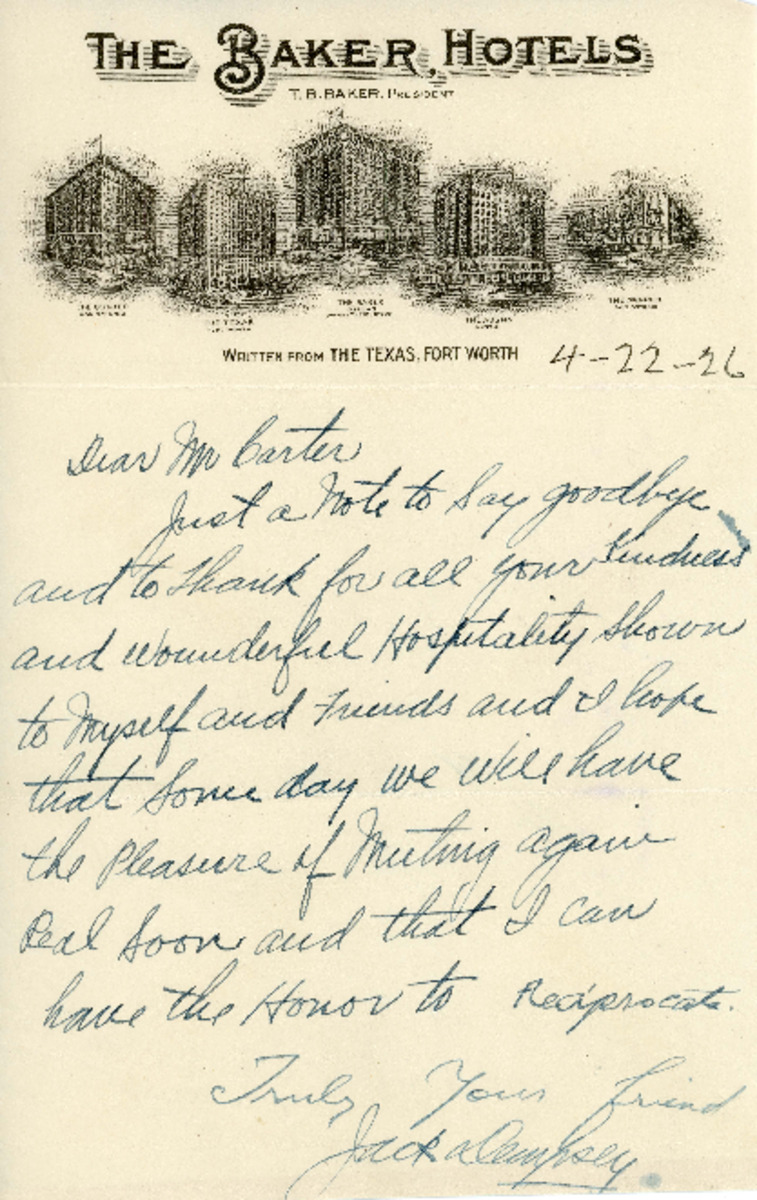 THE BAKER HOTELS
T. B. BAKER, PRESIDENT
THE BAKER
WRITTEN FROM THE TEXAS, FORT WORTH 4-22-26
Dear Mr Carter
Just a Note to Say goodbye
and to thank for all your kindness
and wounderful Hospitality shown
to Myself and Friends and I hope
that Some day we will have
the Pleasure of Meeting again
Real Soon and that I can
have the Honor to Reciprocate.
Truly Your friend
Jack Dempsey